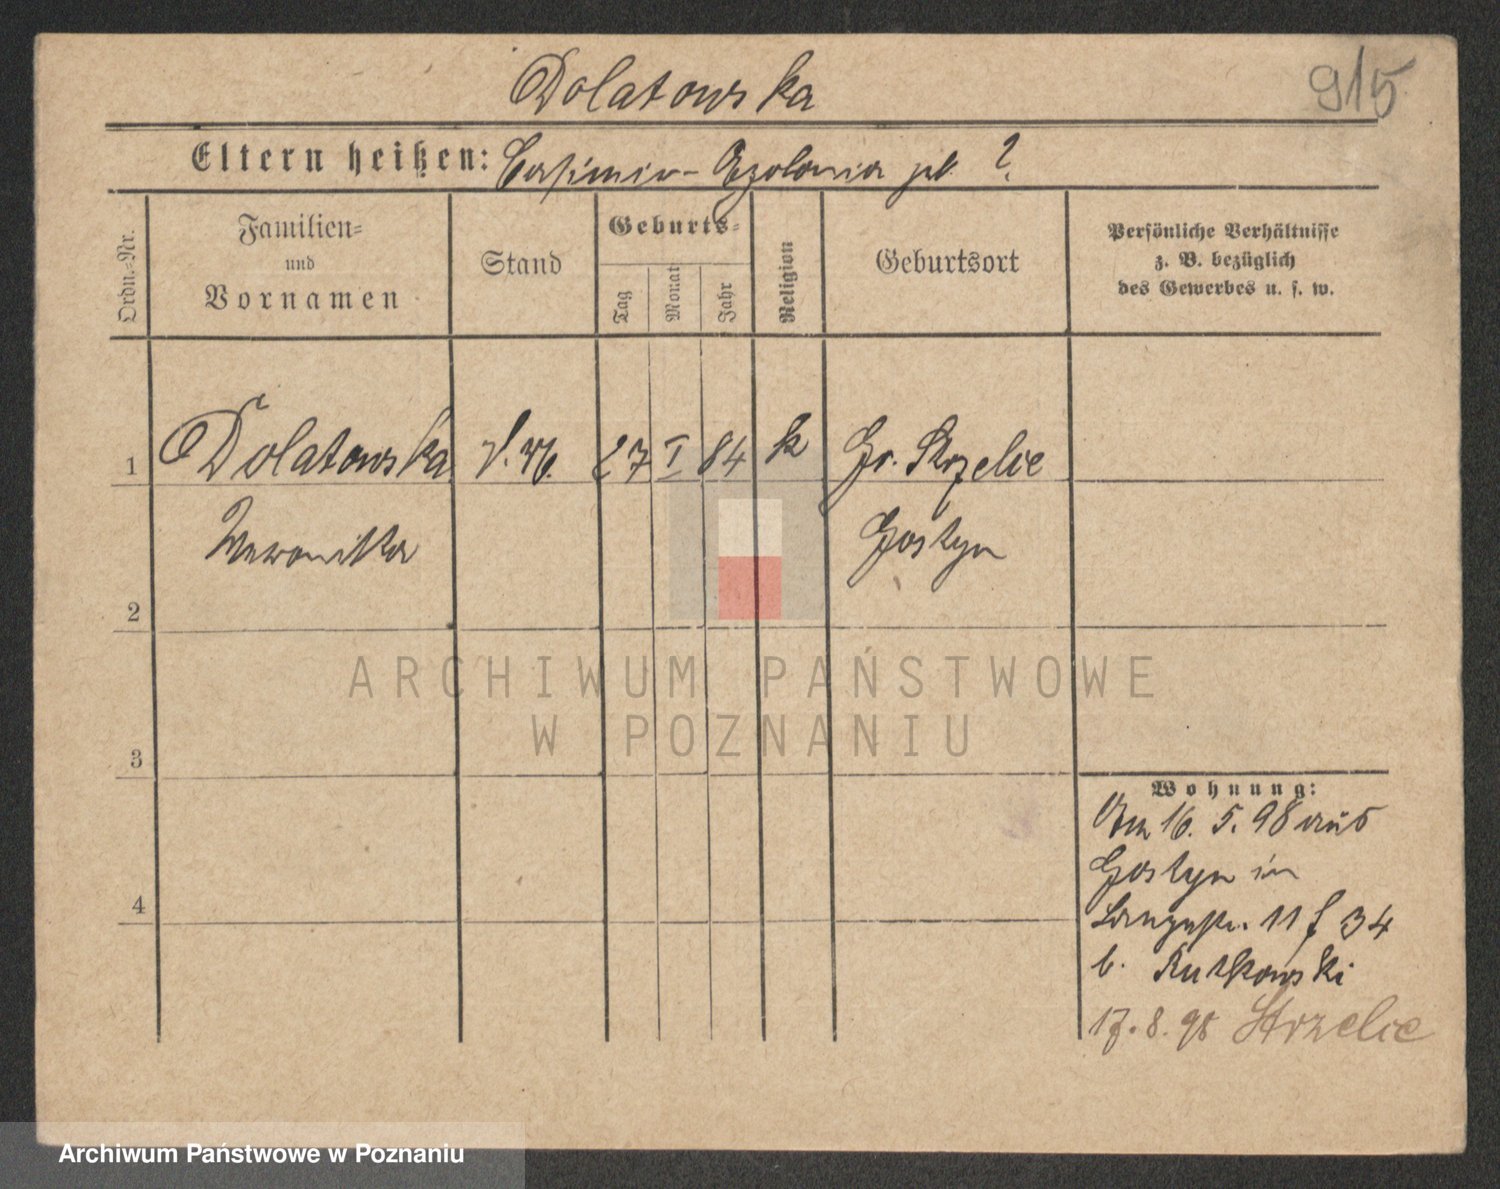 Dolatowska
915
Eltern heißen: Casimir - Apolonia geb. ?
Ordn.=Nr.
Familien=
und
Vornamen
Stand
Geburts=
Tag
Monat
Jahr
Religion
Geburtsort
Persönliche Verhältnisse
z. B. bezüglich
des Gewerbes u. s. w.
1 Dolatowska 27 I 84 k Gr. Strzelce
Weronika Gostyn
2
ARCHIWUM PAŃSTWOWE
W POZNANIU
3
Wohnung:
Am 16. 5. 98 aus
Gostyn in
4
Langestr. 11 f 34
b. Rutkowski
17. 8. 98 Strzelce
Archiwum Państwowe w Poznaniu